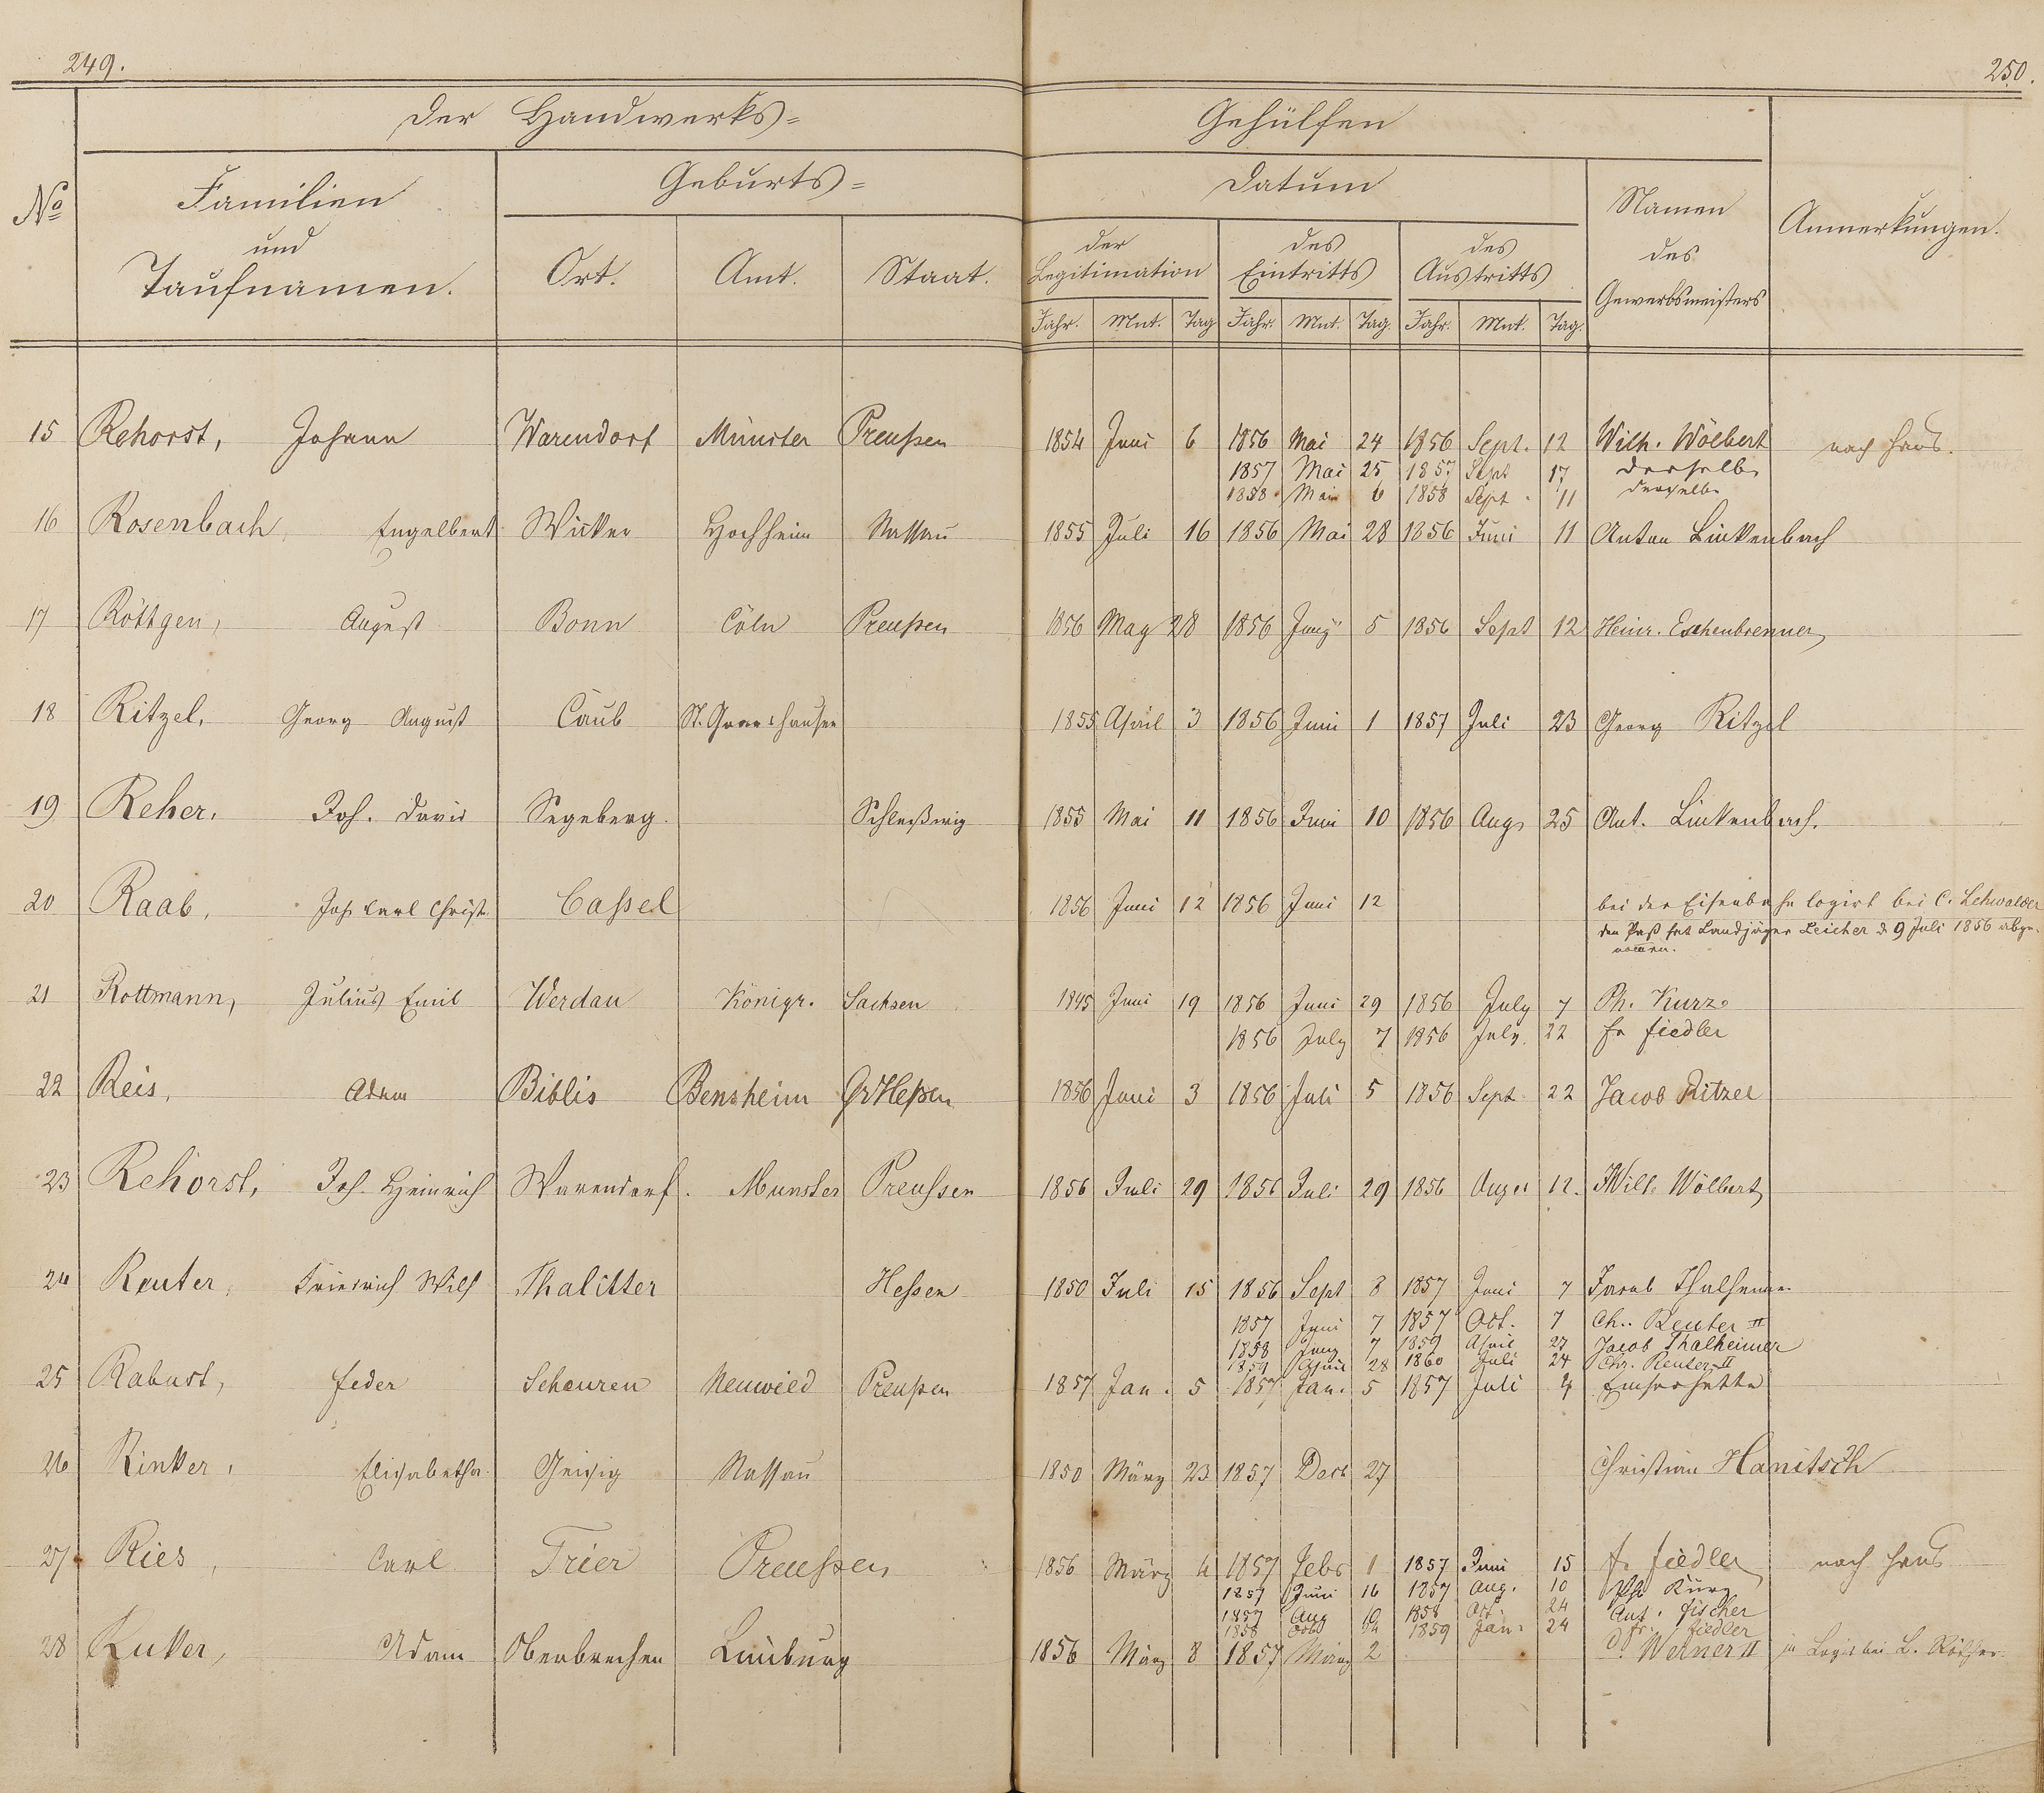 249.
250.
Der Handwerks=
Gehülfen
No
Familien
und
Taufnamen.
Geburts=
Ort.
Amt.
Staat.
Datum
der
Legitimation
des
Eintritts
des
Austritts
Jahr. Mnt. Tag Jahr. Mnt. Tag. Jahr. Mnt. Tag.
Namen
des
Gewerbsmeisters
Anmerkungen.
15 Rehorst, Johann Warendorf Münster Preußen 1854 Juni 6 1856 Mai 24 1856 Sept. 12 Wilh. Wölbert nach Haus.
1857 Mai 25 1857 Sept 17 derselbe
1858 Mai 6 1858 Sept 11 derselbe
16 Rosenbach, Engelbert Wicker Hochheim Nassau 1855 Juli 16 1856 Mai 28 1856 Juni 11 Anton Linkenbach
17 Röttgen, August Bonn Cöln Preußen 1856 May 28 1856 Juny 5 1856 Sept 12 Heinr. Eschenbrenner
18 Ritzel, Georg August Caub St. Goarshausen 1855 April 3 1856 Juni 1 1857 Juli 23 Georg Ritzel
19 Reher, Joh. David Segeberg. Schleßwig 1855 Mai 11 1856 Juni 10 1856 Aug 25 Ant. Linkenbach.
20 Raab, Joh Carl Christ. Caßel 1856 Juni 12 1856 Juni 12 bei der Eisenbahn logirt bei C. Lehwalder
den Paß hat Landjäger Leicher d. 9 Juli 1856 abge-
nommen.
21 Rottmann, Julius Emil Werdau Königr. Sachsen 1845 Juni 19 1856 Juni 29 1856 July 7 Ph. Kurz
1856 July 7 1856 July 22 Fr Fiedler
22 Reis, Adam Biblis Bensheim GrHeßen 1856 Juni 3 1856 Juli 5 1856 Sept 22 Jacob Ritzel
23 Rehorst, Joh. Heinrich Warendorf. Munster Preußen 1856 Juli 29 1856 Juli 29 1856 August 12. Wilh. Wölbert
24 Reuter, Friedrich Wilh Thalitter Heßen 1850 Juli 15 1856 Sept 8 1857 Juni 7 Jacob Thalheimer
1857 Juni 7 1857 Oct. 7 Ch. Reuter II
1858 Juny 7 1859 April 27 Jacob Thalheimer
1859 April 28 1860 Juli 24 Chr. Reuter II
25 Rabust, Peder Scheuren Neuwied Preußen 1857 Jan. 5 1857 Jan. 5 1857 Juli 4 Emserhütte
26 Rinker, Elisabetha Geisig Nassau 1850 März 23 1857 Decb 27 Christian Hanitsch
27 Ries, Carl Trier Preußen 1856 März 4 1857 Febr 1 1857 Juni 15 Fr Fiedler nach Haus
1857 Juni 16 1857 Aug. 10 Ph Kurz
1857 Aug 10 1858 Oct. 24 Ant. Fischer
1858 Octb 24 1859 Jan. 24 Fr. Fiedler
28 Kuker, Adam Oberbrechen Limburg 1856 März 8 1857 März 2 D. Werner II in Logis bei L.